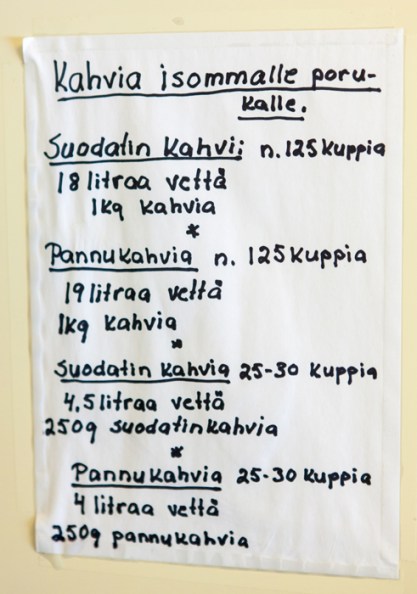 Kahvia isommalle poru-
kalle.
Suodatin kahvi; n. 125 kuppia
18 litraa vettä
1kg kahvia
*
Pannukahvia n. 125 kuppia
19 litraa vettä
1kg kahvia
*
Suodatin kahvia 25-30 kuppia
4,5 litraa vettä
250g suodatinkahvia
*
Pannukahvia 25-30 kuppia
4 litraa vettä
250g pannukahvia